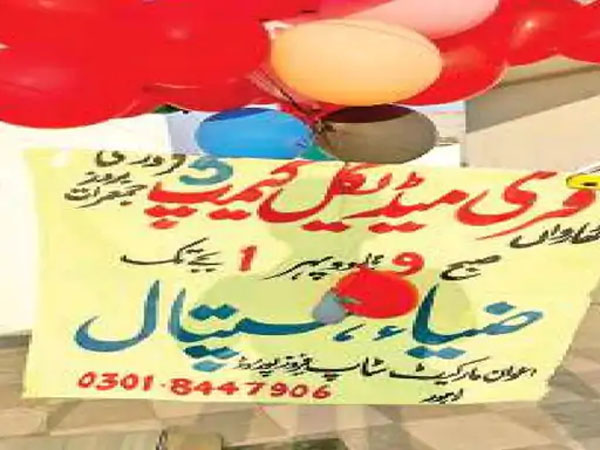 فری میڈیکل کیمپ 5 فروری
بروز جمعرات
صبح 9 تا دوپہر 1 بجے تک
ضیاء ہسپتال
اعوان مارکیٹ سٹاپ فیروزپور روڈ
لاہور
0301-8447906